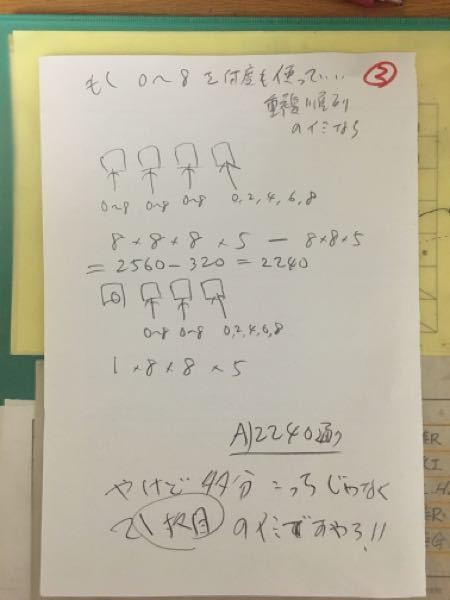 もし 0〜8を何度も使って…
③
重複順列
のイミなら
0〜8 0〜8 0〜8 0,2,4,6,8
8×8×8×5 − 8×8×5
= 2560−320 = 2240
0
0〜8 0〜8 0,2,4,6,8
1×8×8×5
A)2240通り
やけど 44分 こっちじゃなく
1枚目 のイミですやろ!!